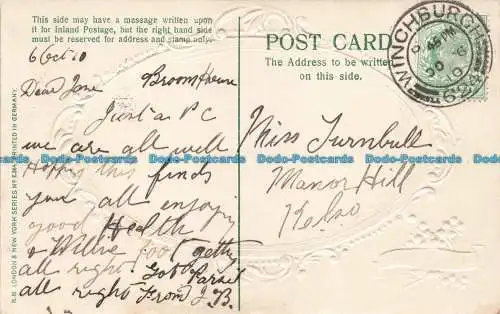 This side may have a message written upon
it for Inland Postage, but the right hand side
must be reserved for address and stamp only.
6 Oct 10
Dear Jane Broomhouse
Just a P C
we are all well
Hopping this finds
you all enjoying
good Health
Willie foot getting
all right Got Parsil
all right From J. B.
POST CARD
The Address to be written
on this side.
WINCHBURGH
45 PM
OC 6
10
624
Miss Turnbull
Manor Hill
Kelso
Dodo-Postcards Dodo-Postcards Dodo-Postcards Dodo-Postcards Dodo-Postcards
LONDON & NEW YORK SERIES No
PRINTED IN GERMANY.